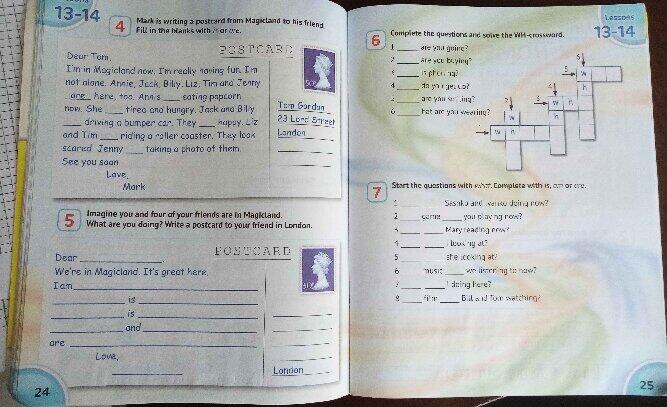 13-14
4 Mark is writing a postcard from Magicland to his friend.
Fill in the blanks with is or are.
POSTCARD
Dear Tom,
I'm in Magicland now. I'm really having fun. I'm
not alone. Annie, Jack, Billy, Liz, Tim and Jenny
are here, too. Annie ___ eating popcorn
now. She ___ tired and hungry. Jack and Billy
___ driving a bumper car. They ___ happy. Liz
and Tim ___ riding a roller coaster. They look
scared. Jenny ___ taking a photo of them.
See you soon
Love,
Mark
Tom Gordon
23 Lord Street
London
5 Imagine you and four of your friends are in Magicland.
What are you doing? Write a postcard to your friend in London.
POSTCARD
Dear ___.
We're in Magicland. It's great here.
I am ___
___ is ___
___ is ___
___ and ___
are ___
Love,
London
24
Lessons
13-14
6 Complete the questions and solve the WH-crossword.
1 ___ are you going?
2 ___ are you buying?
3 ___ is phoning?
4 ___ do you get up?
5 ___ are you smiling?
6 ___ hat are you wearing?
7 Start the questions with what. Complete with is, am or are.
1 ___ ___ Sashko and Ivanko doing now?
2 ___ game ___ you playing now?
3 ___ ___ Mary reading now?
4 ___ ___ I looking at?
5 ___ ___ she looking at?
6 ___ music ___ we listening to now?
7 ___ ___ I doing here?
8 ___ film ___ Bill and Tom watching?
25